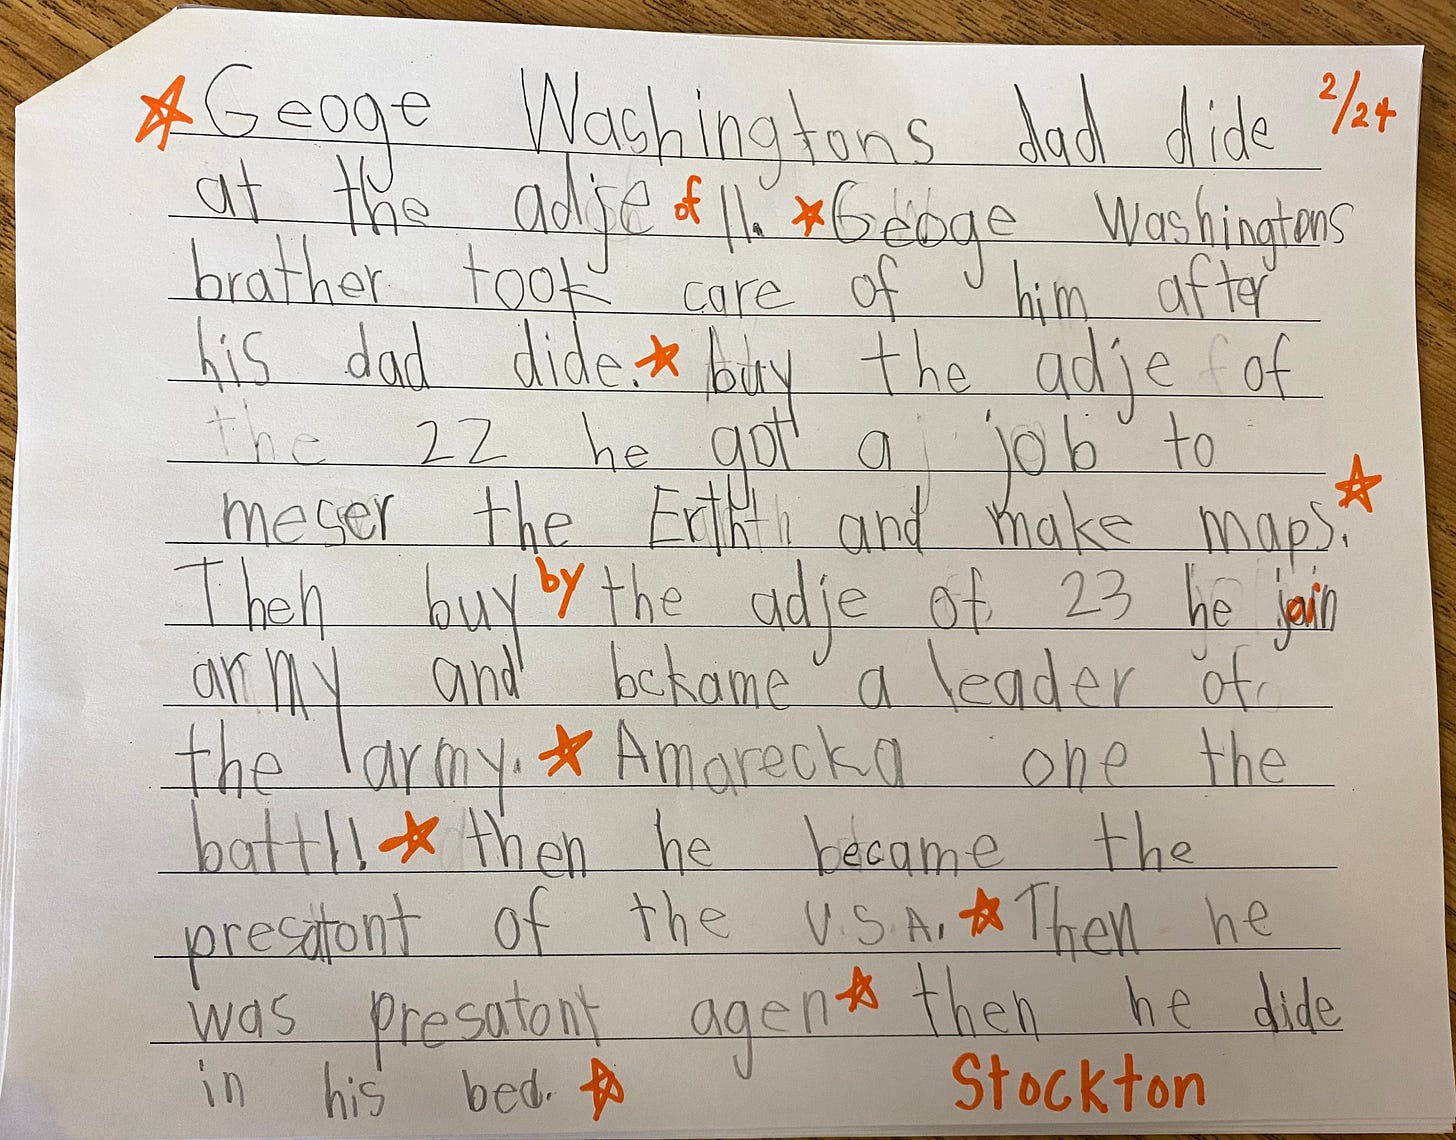 Geoge Washingtons dad dide 2/24
at the adje of 11. Geoge Washingtons
brather took care of him after
his dad dide. buy the adje of
the 22 he got a job to
meser the Erthth and make maps.
Then buy by the adje of 23 he join
army and bckame a leader of
the army. Amarecka one the
battl! then he became the
presatont of the U.S.A. Then he
was presatont agen then he dide
in his bed. Stockton